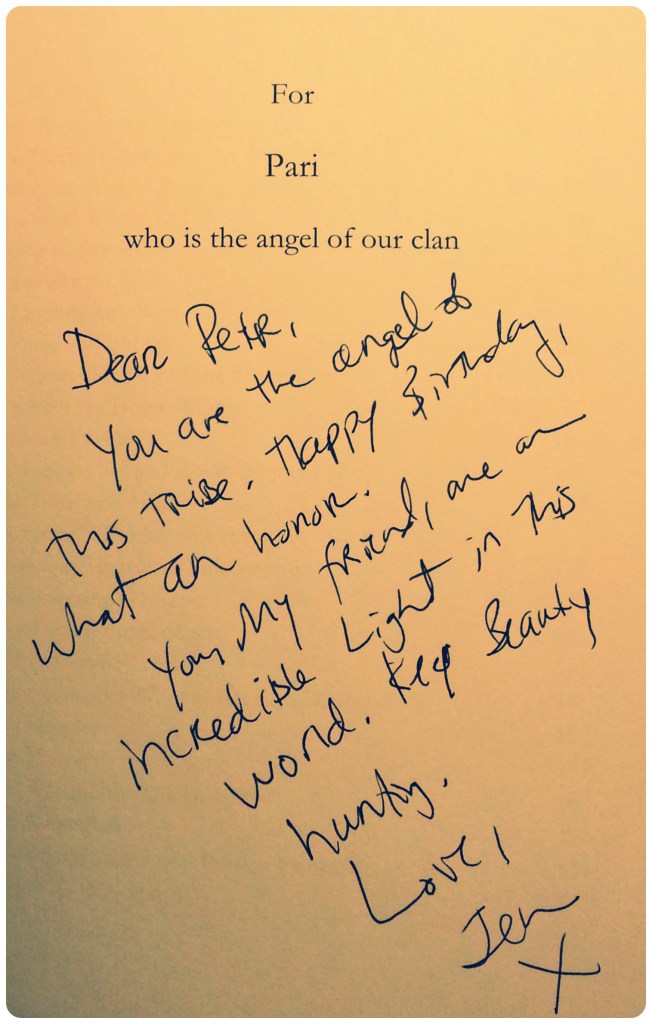 For
Pari
who is the angel of our clan
Dear Petr,
You are the angel of
this tribe. Happy Birthday,
what an honor.
You, My friend, are an
incredible Light in This
world. Keep Beauty
hunting.
Love,
Jen
X